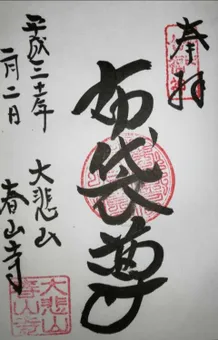 奉拝
布袋尊
大悲山
春山寺
平成三十年
二月二日
大悲山
春山寺